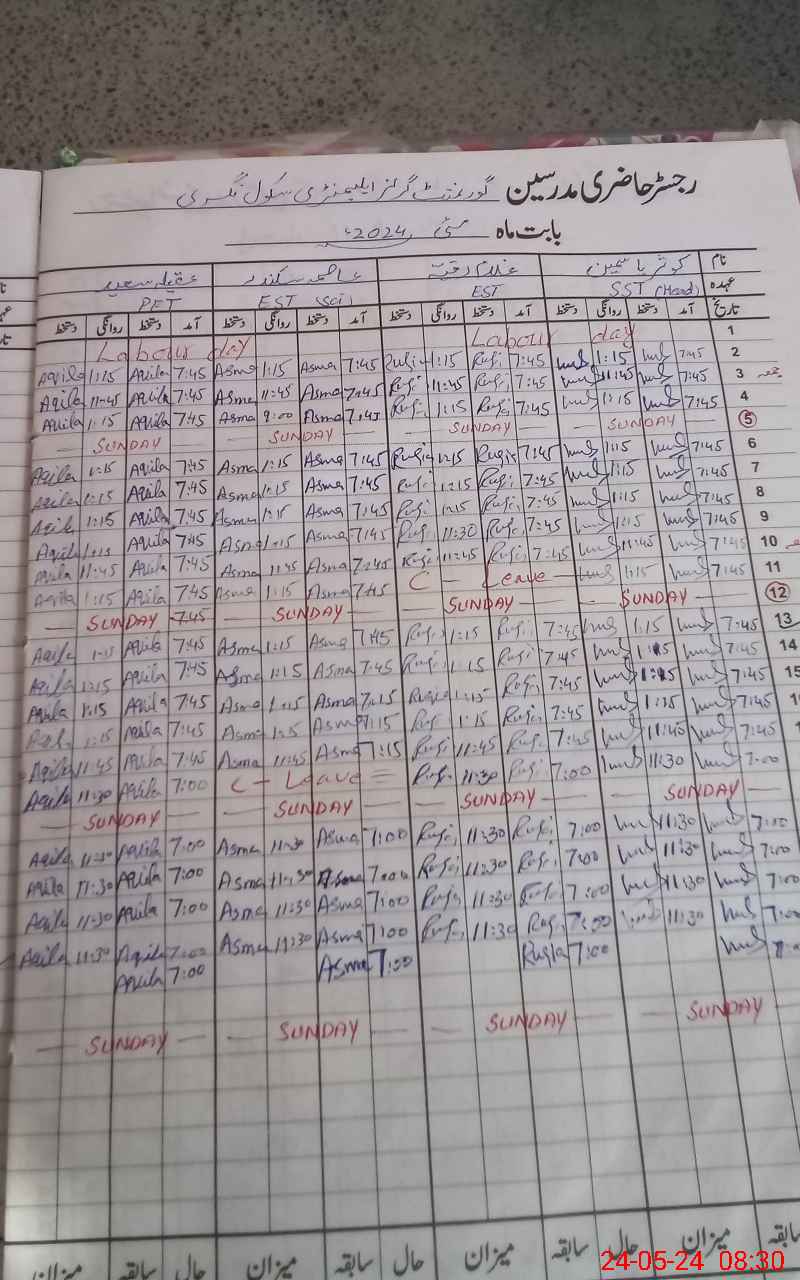 رجسٹر حاضری مدرسین گورنمنٹ گرلز ایلیمنٹری سکول
بابت ماہ مئی 2024ء
نام کوثر یاسمین غلام رقیہ عاصمہ سکندر عقیلہ سعید
عہدہ SST (Head) EST EST (Sci) PET
تاریخ آمد دستخط روانگی دستخط آمد دستخط روانگی دستخط آمد دستخط روانگی دستخط آمد دستخط روانگی دستخط
Labour day Labour day 1
Aqila 1:15 Aqila 7:45 Asma 1:15 Asma 7:45 1:15 Ruqi 7:45 1:15 7:45 2
Aqila 11:45 Aqila 7:45 Asma 11:45 Asma 7:45 Ruqi 11:45 Ruqi 7:45 11:45 7:45 3
Aqila 1:15 Aqila 7:45 Asma 9:00 Asma 7:45 Ruqi 1:15 Ruqi 7:45 1:15 7:45 4
— SUNDAY — — SUNDAY — — SUNDAY — — SUNDAY — 5
Aqila 1:15 Aqila 7:45 Asma 1:15 Asma 7:45 Ruqia 1:15 Ruqia 7:45 1:15 7:45 6
Aqila 1:15 Aqila 7:45 Asma 1:15 Asma 7:45 Ruqi 1:15 Ruqi 7:45 1:15 7:45 7
Aqila 1:15 Aqila 7:45 Asma 1:15 Asma 7:45 Ruqi 1:15 Ruqi 7:45 1:15 7:45 8
Aqila 1:15 Aqila 7:45 Asma 1:15 Asma 7:45 Ruqi 11:30 Ruqi 7:45 1:15 7:45 9
Aqila 11:45 Aqila 7:45 Asma 11:45 Asma 7:45 Ruqi 11:45 Ruqi 7:45 11:45 7:45 10
Aqila 1:15 Aqila 7:45 Asma 1:15 Asma 7:45 C — Leave — 1:15 7:45 11
— SUNDAY — 7:45 — SUNDAY — — SUNDAY — — SUNDAY — 12
Aqila 1:15 Aqila 7:45 Asma 1:15 Asma 7:45 Ruqi 1:15 Ruqi 7:45 1:15 7:45 13
Aqila 1:15 Aqila 7:45 Asma 1:15 Asma 7:45 Ruqi 1:15 Ruqi 7:45 1:15 7:45 14
Aqila 1:15 Aqila 7:45 Asma 1:15 Asma 7:15 Ruqia 1:15 Ruqi 7:45 1:15 7:45 15
1:15 Aqila 7:45 Asma 1:15 Asma 7:15 Ruqi 1:15 Ruqi 7:45 1:15 7:45
Aqila 11:45 Aqila 7:45 Asma 11:45 Asma 7:15 Ruqi 11:45 Ruqi 7:45 11:45 7:45
Aqila 11:30 Aqila 7:00 C — Leave = Ruqi 11:30 Ruqi 7:00 11:30 7:00
— SUNDAY — — SUNDAY — — SUNDAY — — SUNDAY —
Aqila 11:30 Aqila 7:00 Asma 11:30 Asma 7:00 Ruqi 11:30 Ruqi 7:00 11:30 7:00
Aqila 11:30 Aqila 7:00 Asma 11:30 Asma 7:00 Ruqi 11:30 Ruqi 7:00 11:30 7:00
Aqila 11:30 Aqila 7:00 Asma 11:30 Asma 7:00 Ruqi 11:30 Ruqi 7:00 11:30 7:00
Aqila 11:30 Aqila 7:00 Asma 11:30 Asma 7:00 Ruqi 11:30 Ruqi 7:00 11:30 7:00
Aqila 7:00 Asma 7:00 Ruqia 7:00
— SUNDAY — — SUNDAY — — SUNDAY — — SUNDAY —
سابقہ میزان حال سابقہ میزان حال سابقہ میزان حال سابقہ میزان
24-05-24 08:30